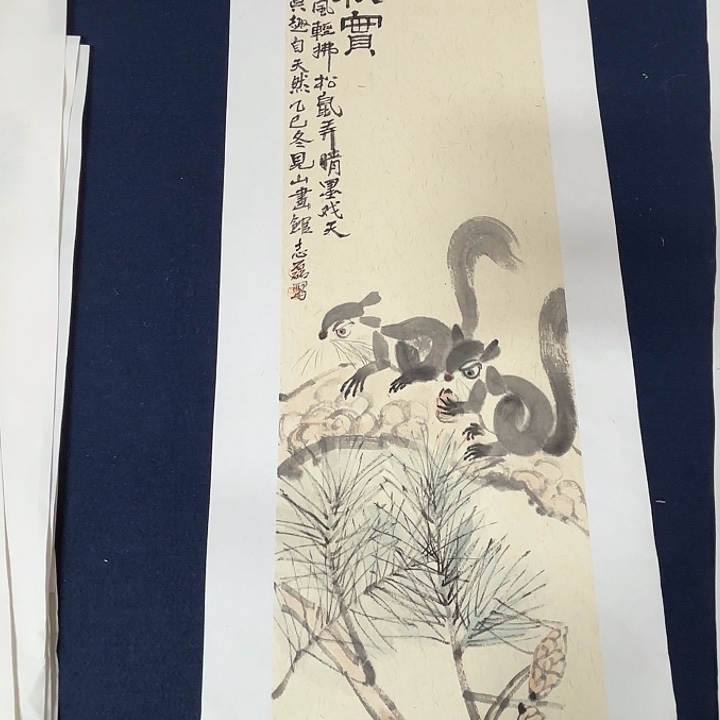 實
風輕拂松鼠弄晴墨戏天
趣自天然乙巳冬見山畫館志磊寫